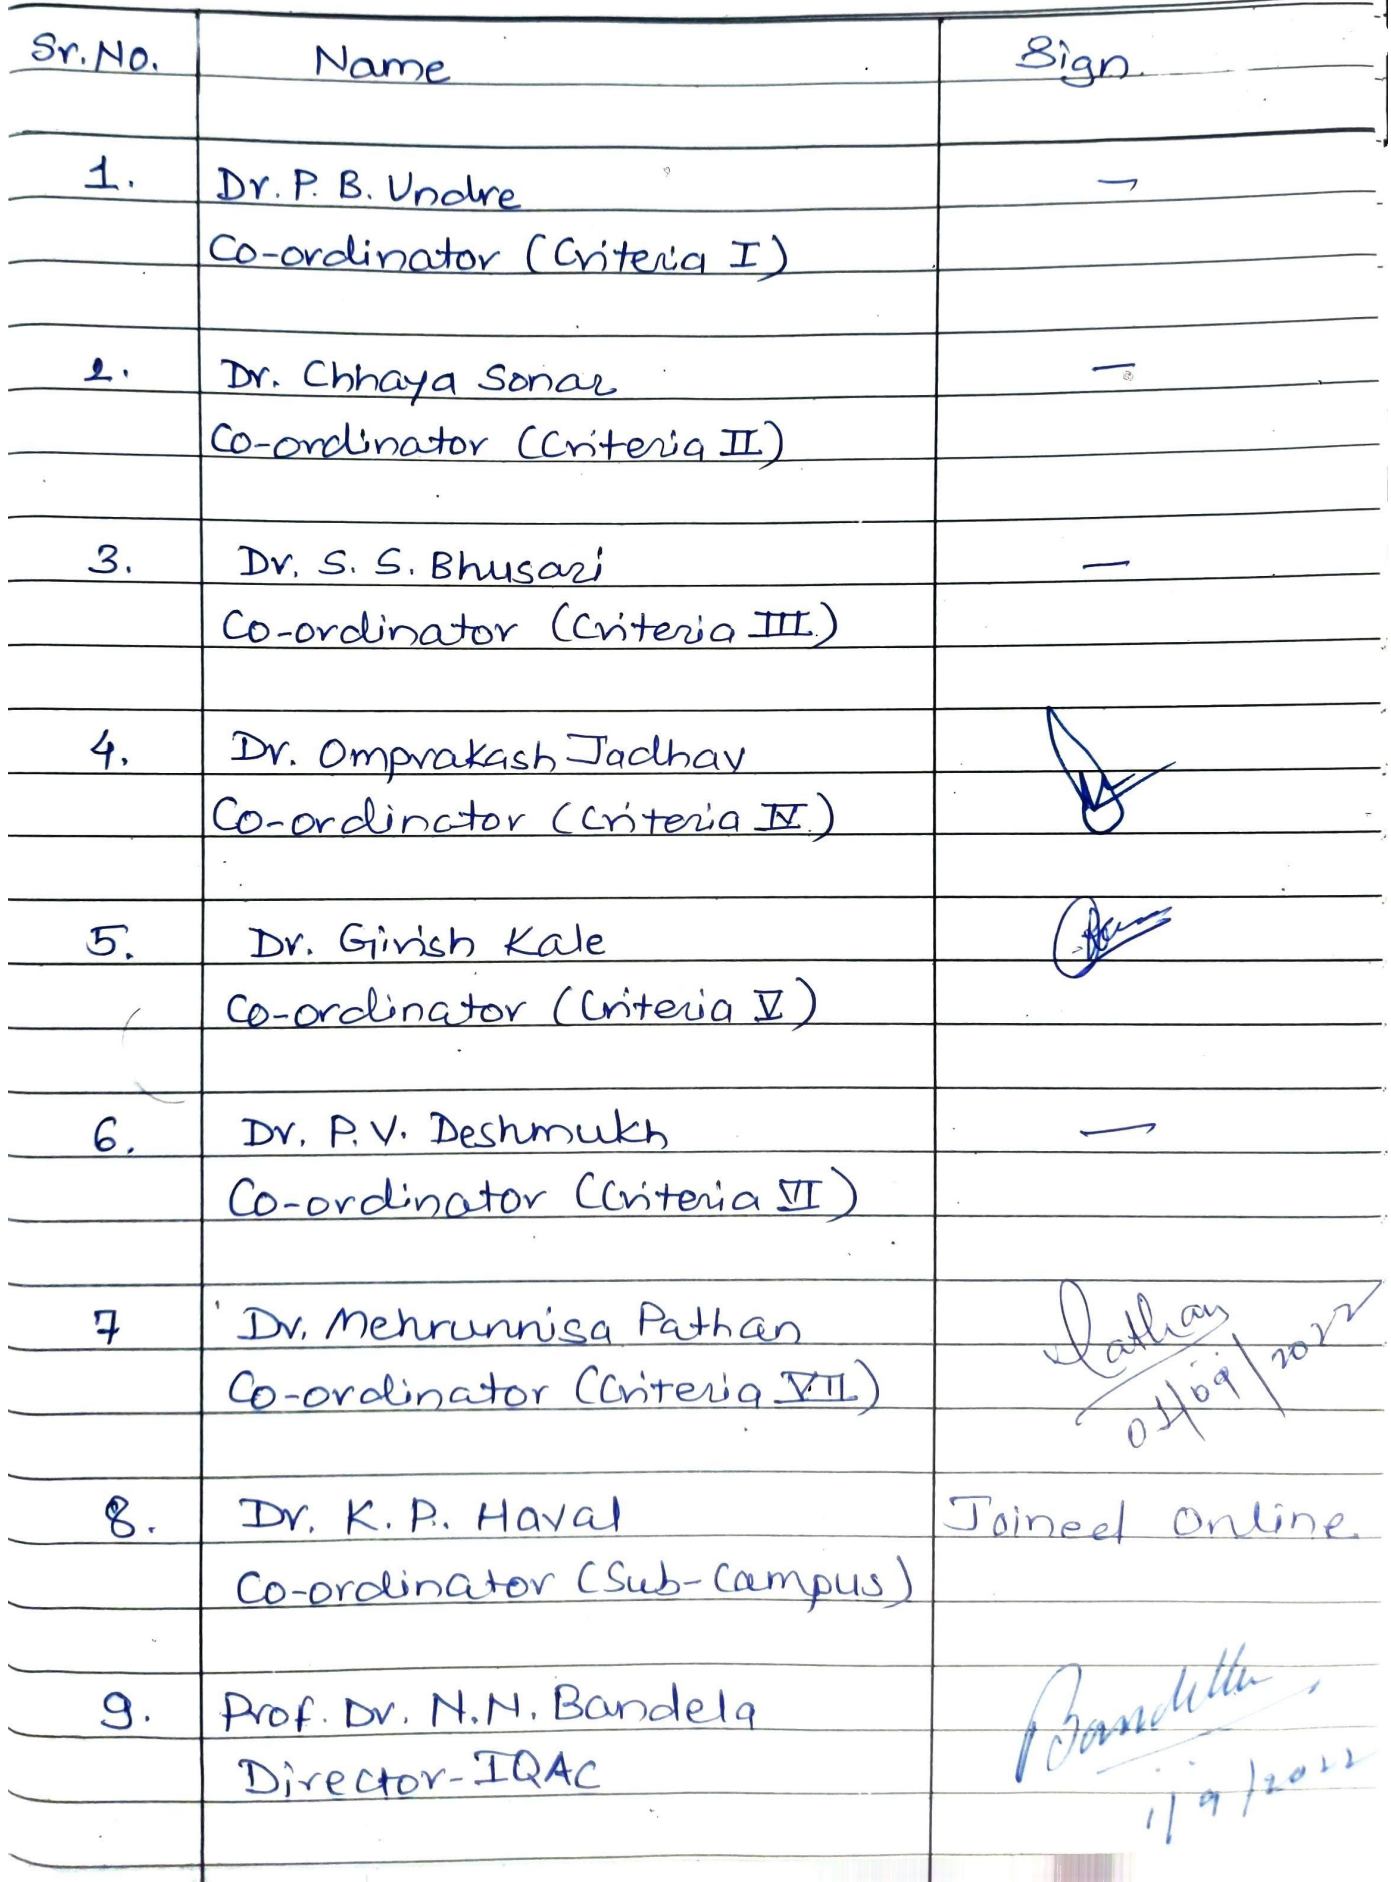 Sr. No. Name Sign.
1. Dr. P. B. Undre —
Co-ordinator (Criteria I)
2. Dr. Chhaya Sonar —
Co-ordinator (Criteria II)
3. Dr. S. S. Bhusari —
Co-ordinator (Criteria III)
4. Dr. Omprakash Jadhav
Co-ordinator (Criteria IV)
5. Dr. Girish Kale
Co-ordinator (Criteria V)
6. Dr. P. V. Deshmukh —
Co-ordinator (Criteria VI)
7 Dr. Mehrunnisa Pathan Pathan
Co-ordinator (Criteria VII) 01/09/2022
8. Dr. K. P. Haval Joined Online.
Co-ordinator (Sub-Campus)
9. Prof. Dr. N. N. Bandela
Director-IQAC 1/9/2022